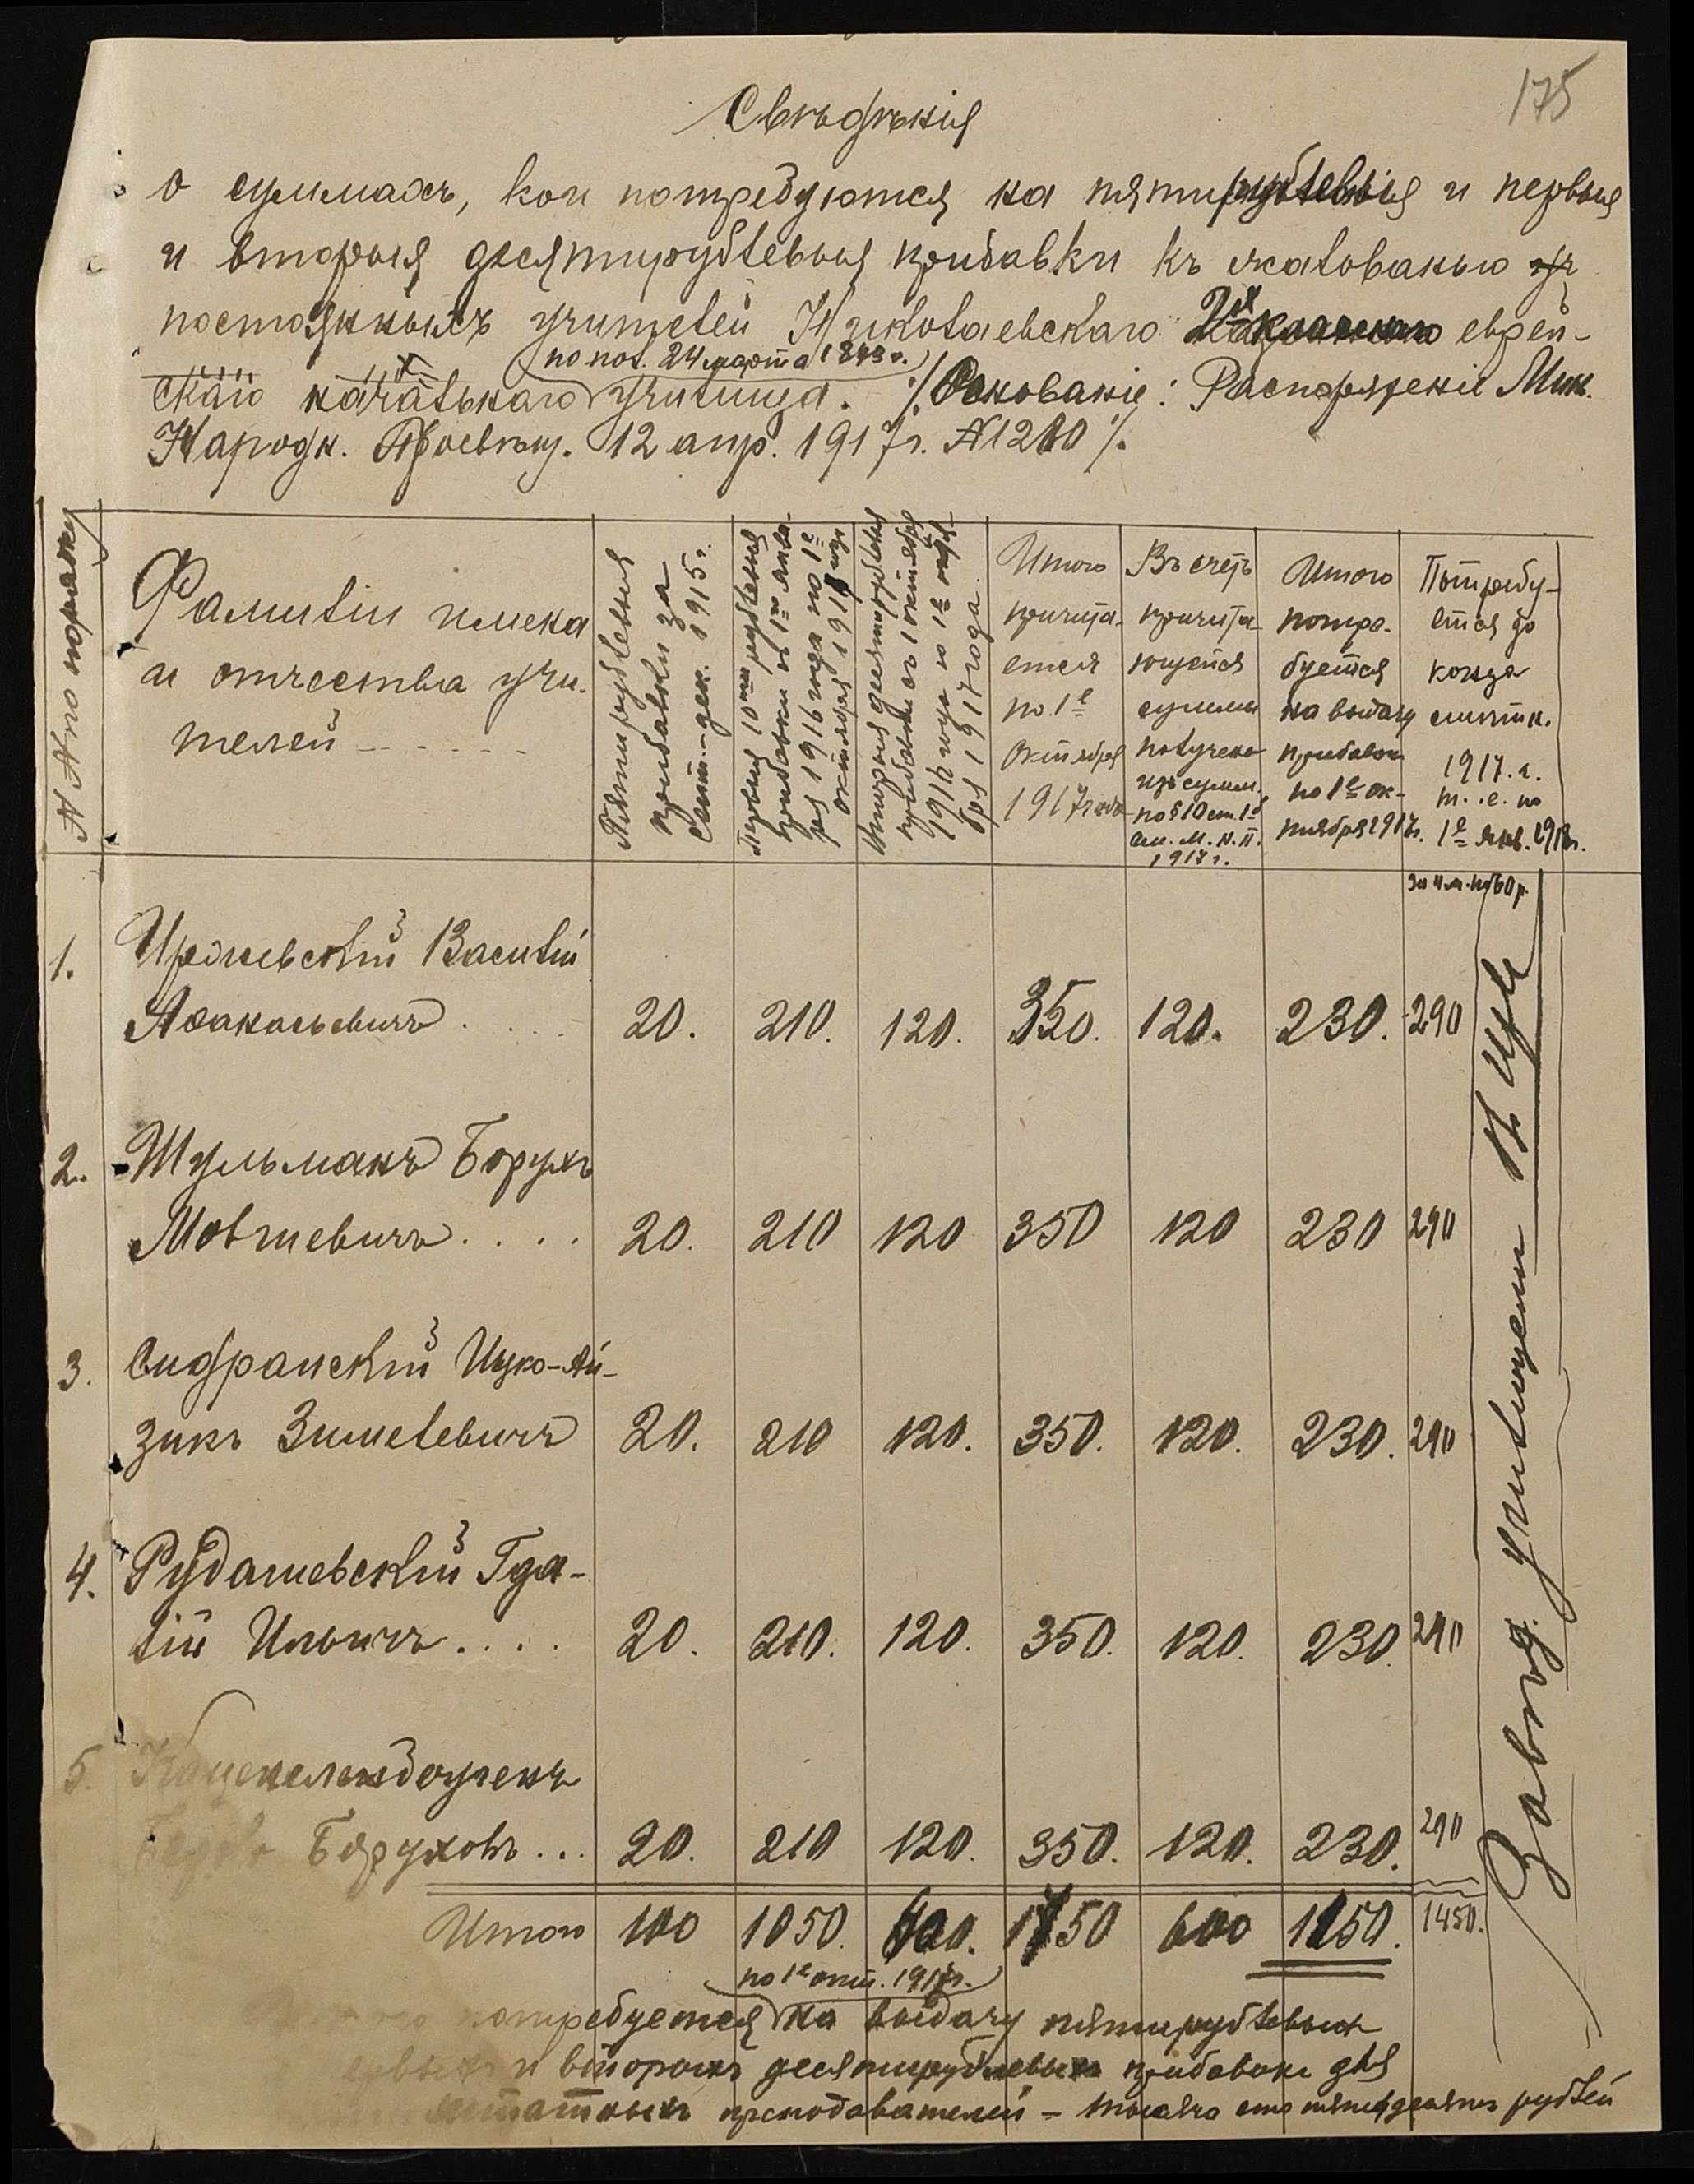 175
Свѣдѣнія
о суммахъ, кои потребуются на пятирублевыя и первыя
и вторыя десятирублевыя прибавки къ жалованью
постоянныхъ учителей Николаевскаго еврей-
по пол. 24 марта 1873 г.
скаго начальнаго училища. /. Основаніе: Распоряженіе Мин.
Народн. Просвѣщ. 12 апр. 1917 г. № 1280 /.
№№ по порядку
Фамиліи имена
и отчества учи-
телей
Пятирублевыя
прибавки за
сент.-дек. 1915 г.
Первыя 10ти рублевыя
прибавки съ 1го янва-
ря 1916 года по 1е
октября 1917 года
Вторыя десятирублевыя
прибавки съ 1 октября
1916 года по 1е октяб-
бря 1917 года
Итого
причита-
ется
по 1е
Октября
1917 года
Въ счетъ
причита-
ющейся
суммы
получено
изъ сумм.
по § 10 ст. 1й
см. М. Н. П.
1917 г.
Итого
потре-
буется
на выдачу
прибавок
по 1е ок-
тября 1917 г.
Потребу-
ется до
конца
смѣтн.
1917 г.
т. е. по
1е янв. 1918 г.
1.
Иржевскій Василій
Афанасьевичъ . . . .
20. 210. 120. 350. 120. 230. 290
2.
Шульманъ Борухъ
Мовшевичъ . . . .
20. 210 120 350 120 230 290
3.
Сидранскій Ицко-Ай-
зикъ Зимелевичъ
20. 210 120. 350. 120. 230. 290
4.
Рудашевскій Гда-
лій Ильичъ . . . .
20. 210. 120. 350. 120. 230. 290
5.
Борухов. . . .
20. 210 120. 350. 120. 230. 290
Итого 100 1050. 600. 1750 600 1150. 1450.
по 1е окт. 1917 г.
потребуется на выдачу пятирублевыхъ
и вторыхъ десятирублевыхъ прибавокъ для
штатныхъ преподавателей – тысяча сто пятьдесятъ рублей
Завѣд. училищемъ